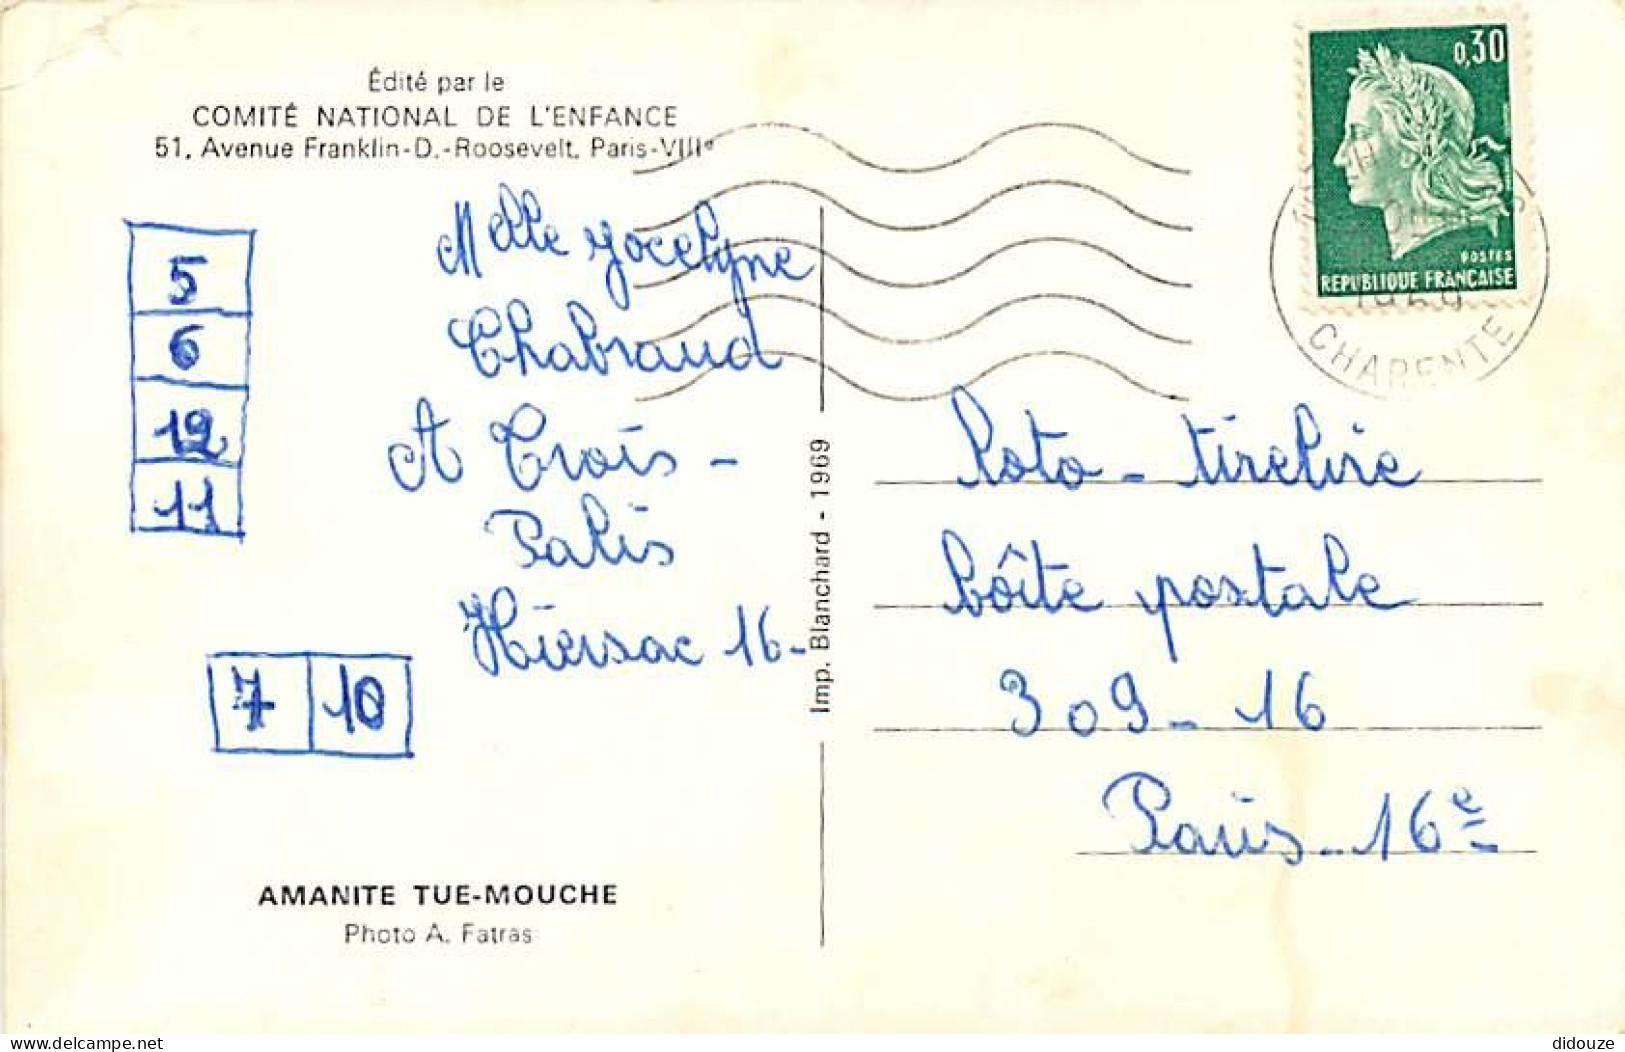 Édité par le
COMITÉ NATIONAL DE L'ENFANCE
51, Avenue Franklin-D.-Roosevelt, Paris-VIIIe
0,30
POSTES
REPUBLIQUE FRANÇAISE
1969
CHARENTE
5
6
12
11
Melle Jocelyne
Chabraud
A Trois -
Palis
Hiersac 16-
7 10
Imp. Blanchard - 1969
loto - tirelire
boîte postale
309 - 16
Paris - 16e
AMANITE TUE-MOUCHE
Photo A. Fatras
didouze